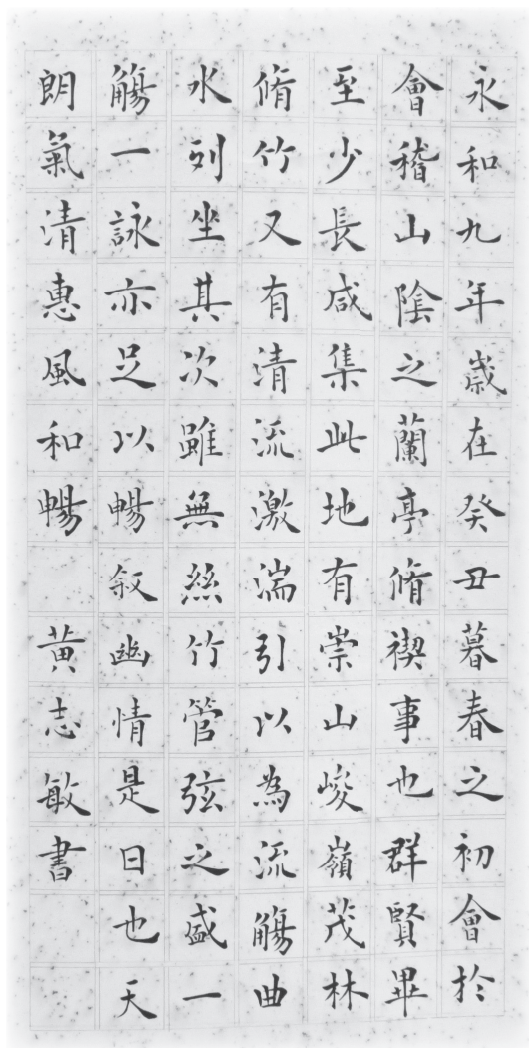 永和九年歲在癸丑暮春之初會於
會稽山陰之蘭亭脩禊事也群賢畢
至少長咸集此地有崇山峻嶺茂林
脩竹又有清流激湍引以為流觴曲
水列坐其次雖無絲竹管弦之盛一
觴一詠亦足以暢叙幽情是日也天
朗氣清惠風和暢 黃志敏書